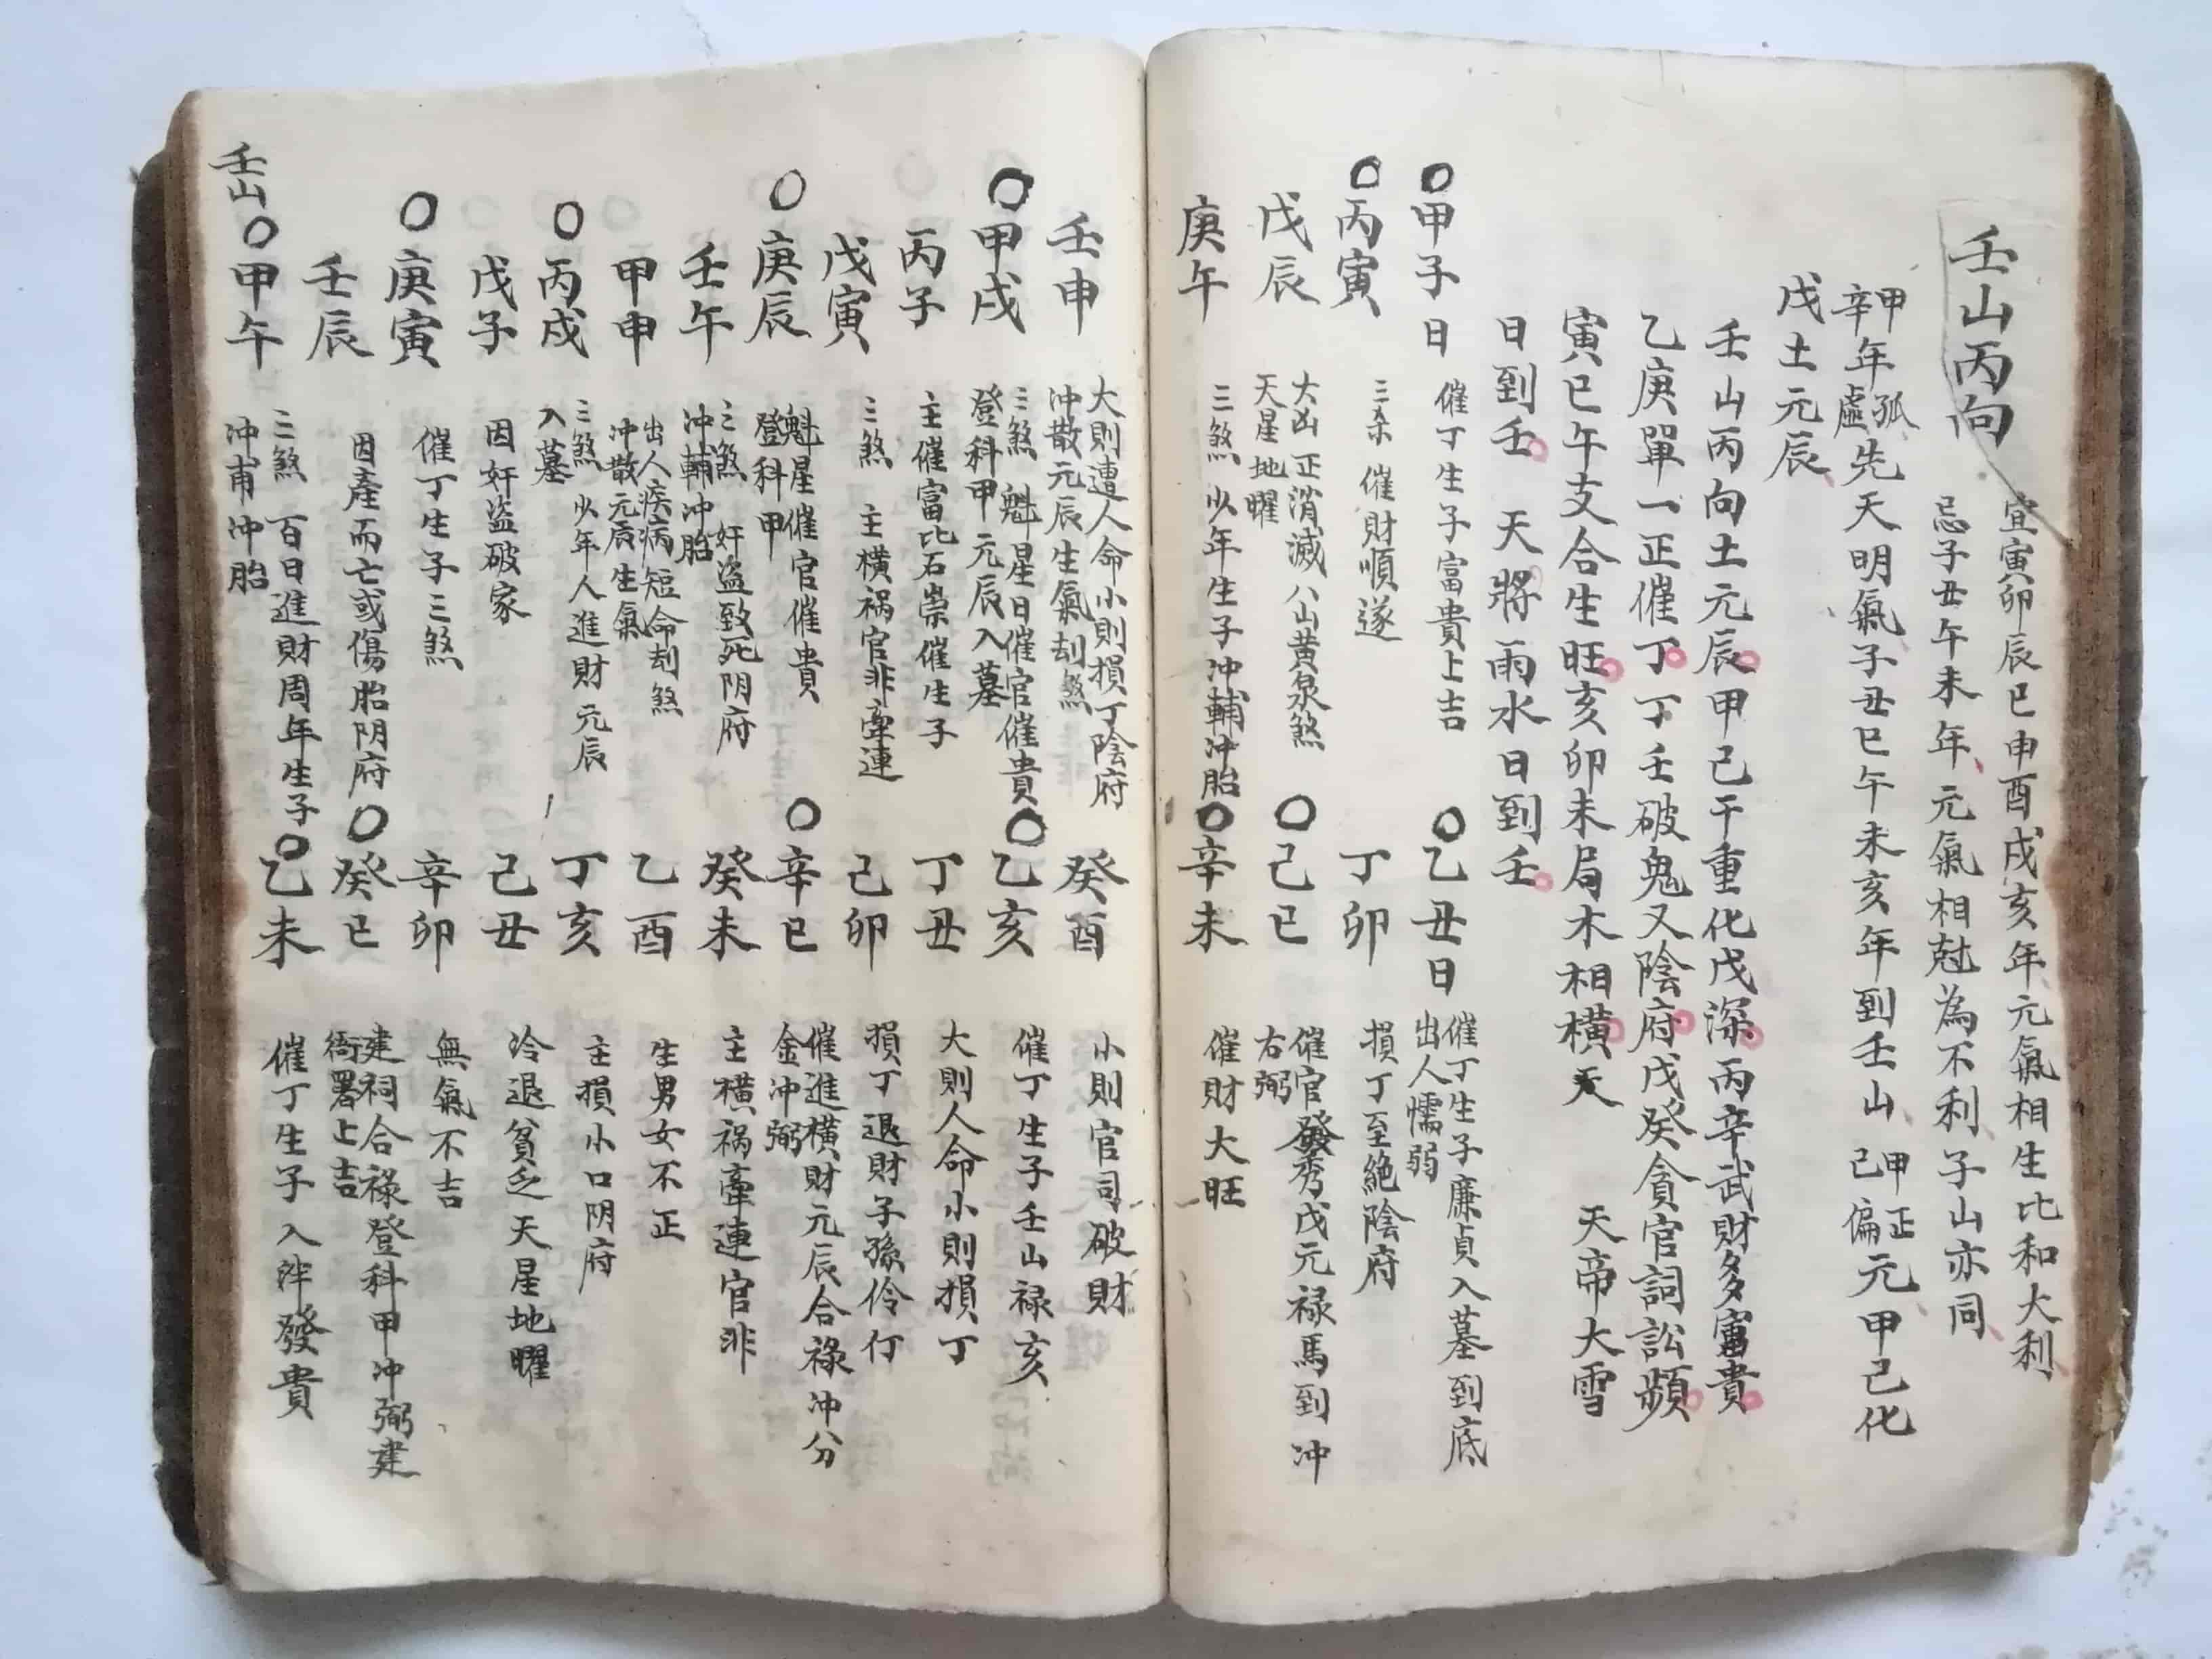 壬山丙向
宜寅卯辰巳申酉戌亥年元氣相生比和大利
忌子丑午未年元氣相尅為不利子山亦同
甲孤
辛年虛先天明氣子丑巳午未亥年到壬山
甲正
己偏元甲己化
戊土元辰
壬山丙向土元辰甲己干重化戊深丙辛武財多富貴
乙庚單一正催丁丁壬破鬼又陰府戊癸貪官詞訟頻
寅巳午支合生旺亥卯未局木相橫天 天帝大雪
日到壬 天將雨水日到壬
〇甲子日 催丁生子富貴上吉
〇乙丑日 催丁生子廉貞入墓到底
出人懦弱
〇丙寅 三杀催財順遂
丁卯 損丁至絶陰府
戊辰 大凶正消滅八山黄泉煞
天星地曜
〇己巳 催官發秀戊元禄馬到冲
右弼
庚午 三煞 少年生子冲輔冲胎
〇辛未 催財大旺
壬申 大則遭人命小則損丁陰府
冲散元辰生氣刦煞
癸酉 小則官司破財
〇甲戌 三煞 魁星日催官催貴
登科甲元辰入墓
〇乙亥 催丁生子壬山禄亥
丙子 主催富比石崇催生子
丁丑 大則人命小則損丁
戊寅 三煞 主橫祸官非牽連
己卯 損丁退財子孫伶仃
〇庚辰 魁星催官催貴
登科甲
〇辛巳 催進橫財元辰合祿冲分
金冲弼
壬午 三煞 奸盗致死阴府
冲輔冲胎
癸未 主橫祸牽連官非
甲申 出人疾病短命刦煞
冲散元辰生氣
乙酉 生男女不正
〇丙戌 三煞 少年人進財元辰
入墓
丁亥 主損小口阴府
戊子 因奸盗破家
己丑 冷退貧乏天星地曜
〇庚寅 催丁生子三煞
辛卯 無氣不吉
壬辰 因產而亡或傷胎阴府
〇癸巳 建祠合祿登科甲冲弼建
衙署上吉
壬山〇甲午 三煞 百日進財周年生子
冲甫冲胎
〇乙未 催丁生子入泮發貴